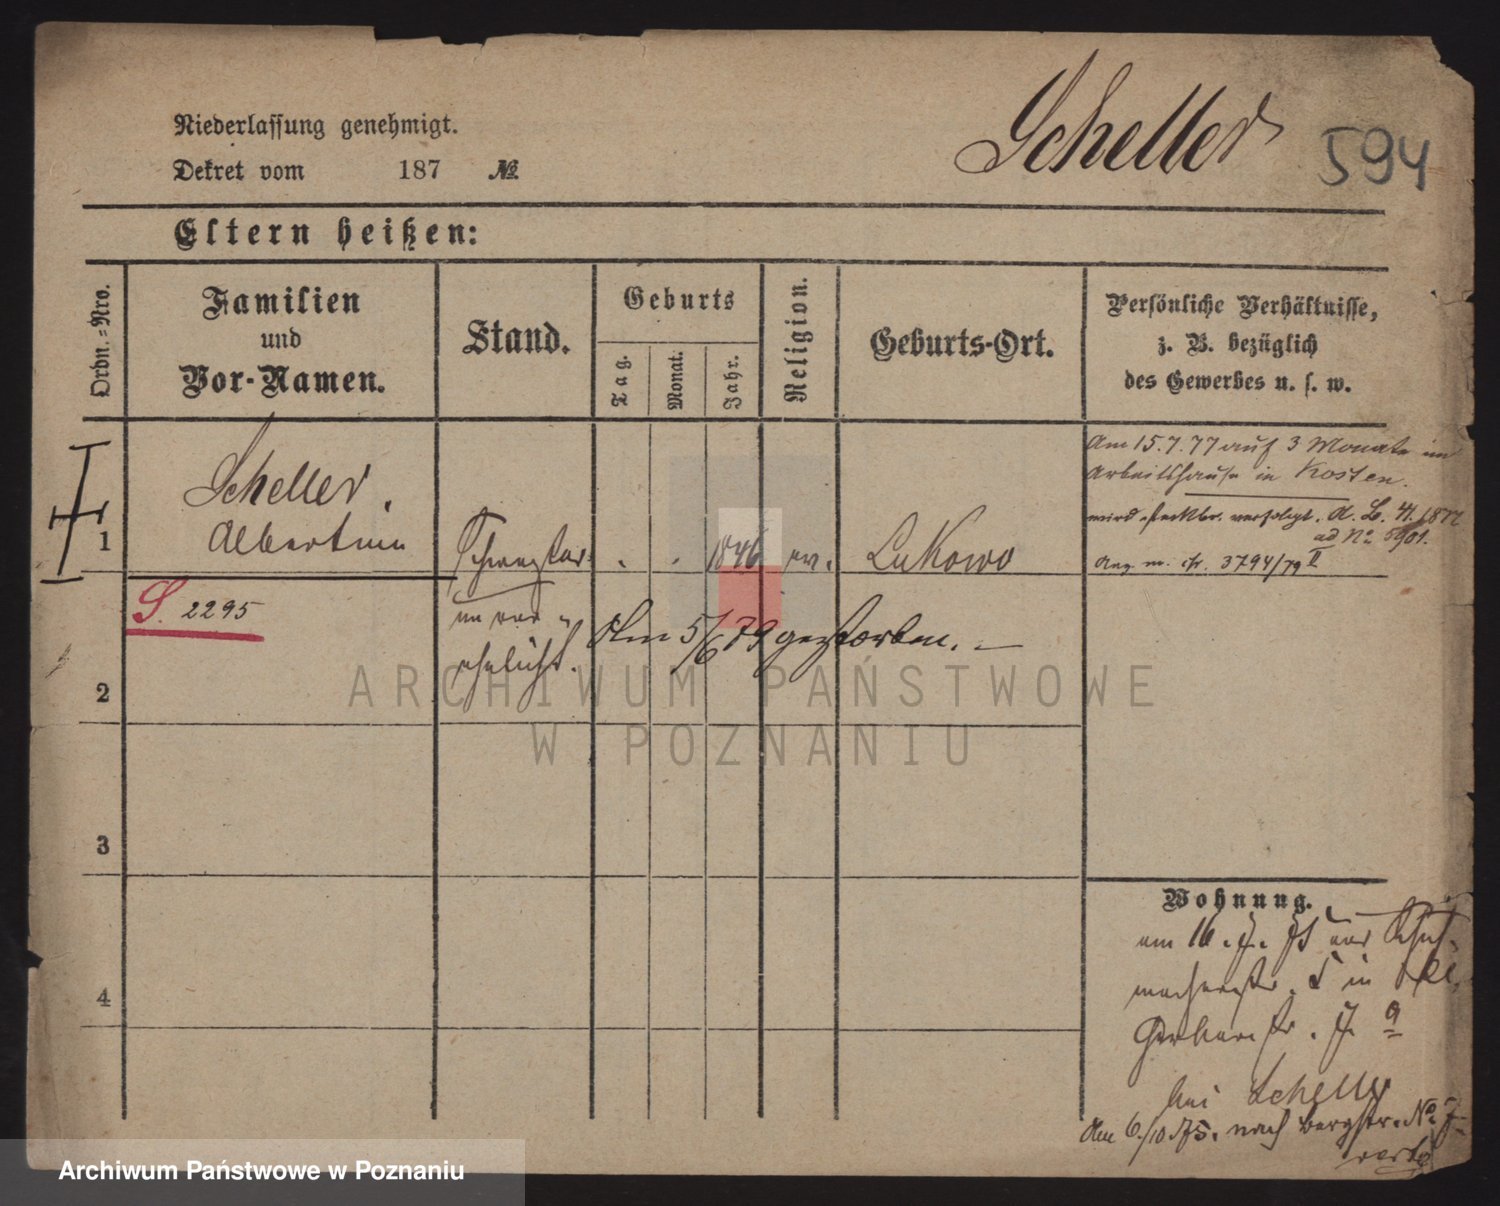 Scheller
594
Niederlassung genehmigt.
Dekret vom 187 №
Eltern heißen:
Ordn.-Nro.
Familien
und
Vor-Namen.
Stand.
Geburts
Tag.
Monat.
Jahr.
Religion.
Geburts-Ort.
Persönliche Verhältnisse,
z. B. bezüglich
des Gewerbes u. s. w.
1
Scheller,
Albertine
unver-
ehelicht.
1846
ev.
Lukowo
Am 15.7.77 auf 3 Monate im
Arbeitshause in Kosten.
wird steckbr. verfolgt.
ad No 5901.
3794/79 II
S. 2295
Am 5/6 79 gestorben. —
2
3
4
Wohnung.
am 16.
in
Gerberstr.
bei Scheller
Am 6./10 75. nach Bergstr. No 7
ARCHIWUM PAŃSTWOWE
W POZNANIU
Archiwum Państwowe w Poznaniu